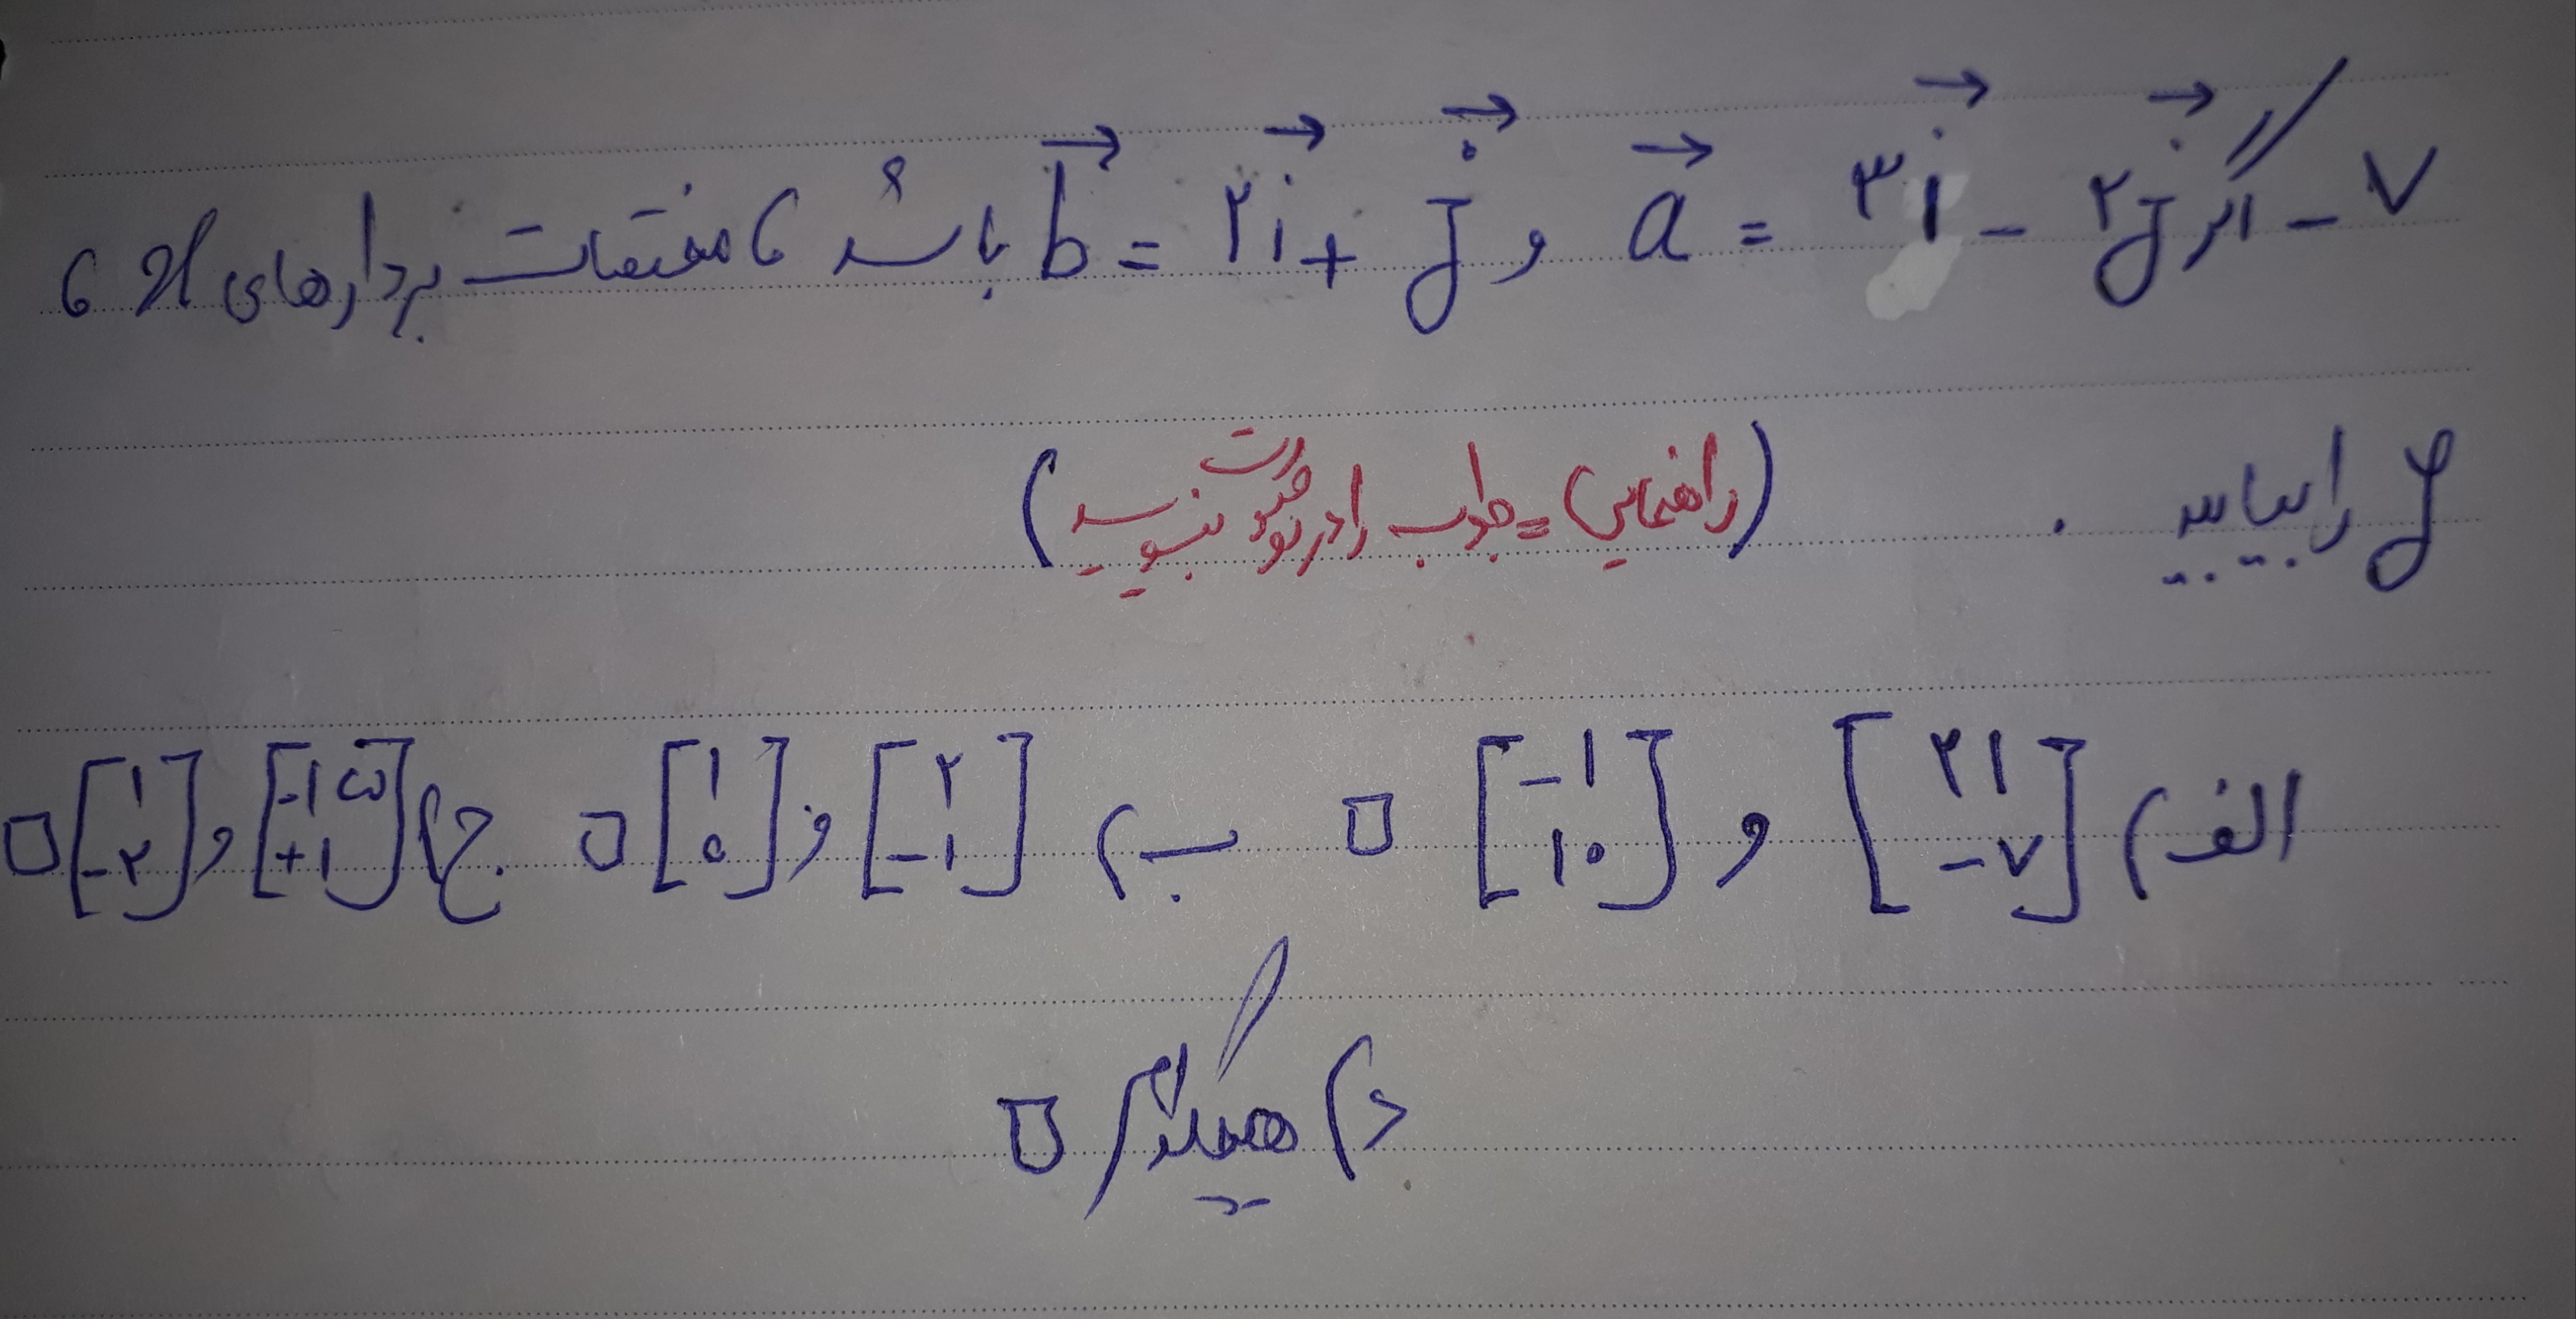 ۷ - اگر a⃗ = ۳i⃗ - ۲j⃗ و b⃗ = ۲i⃗ + j⃗ باشد، مختصات بردارهای x،
y را بیابید.
(راهنمایی = جواب را در نوت خود بنویسید)
الف) [۲۱ -۷] و [-۱ ۱۰] □ ب) [۲ -۱] و [۱ ۰] □ ج) [-۱۵ +۱] و [۱ -۲] □
د) هیچکدام □